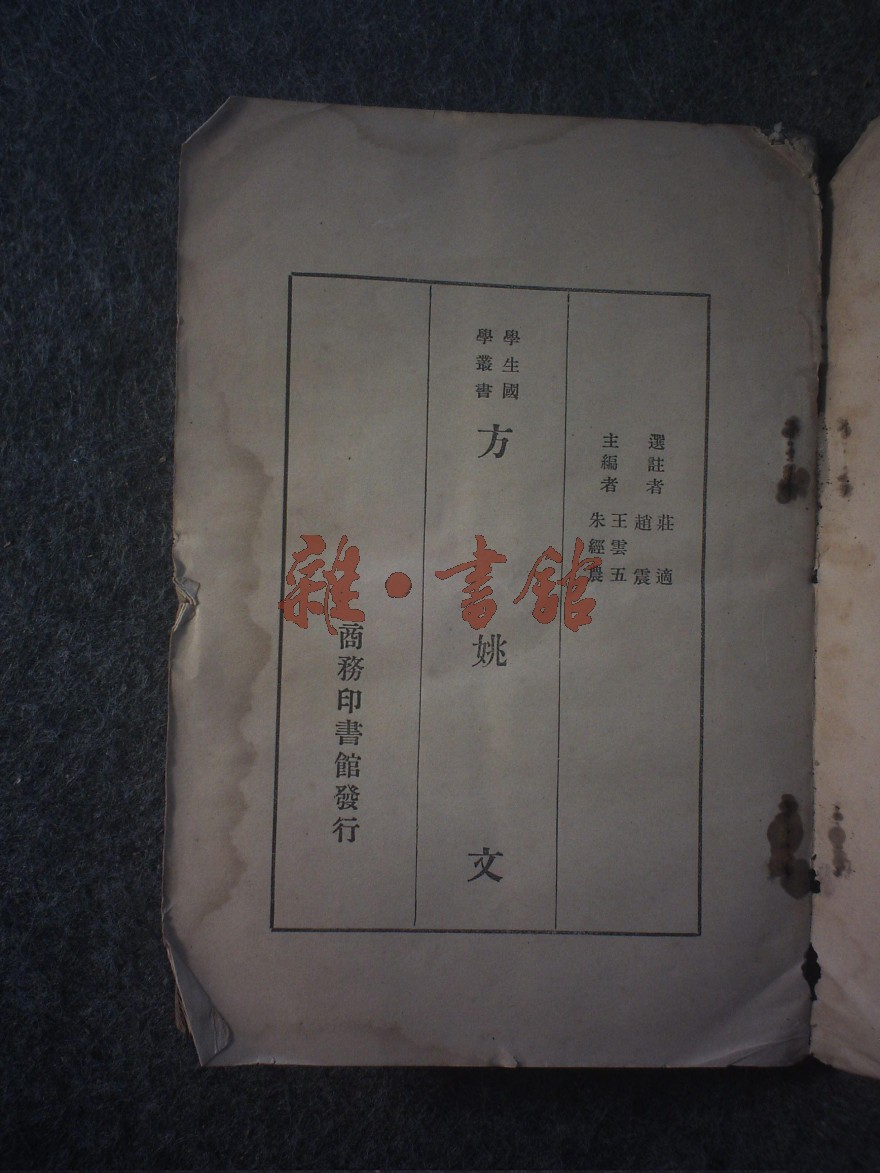 選註者
莊適
趙震
主編者
王雲五
朱經農
學生國
學叢書
方姚文
商務印書館發行
雜·書館